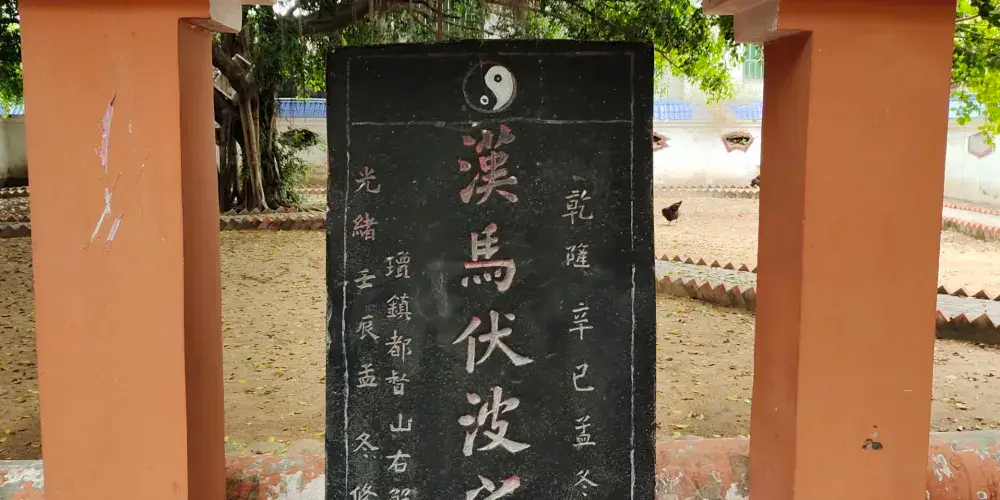 乾隆辛巳孟冬
漢馬伏波
瓊鎮都督山右
光緒壬辰孟冬修